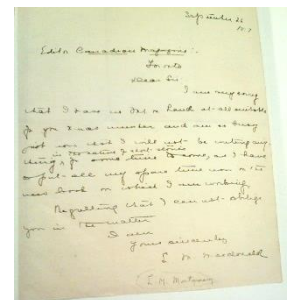 September 21
Editor Canadian Magazine:-
Toronto
Dear Sir:
I am very sorry
that I have no on hand at all suitable
for your Xmas number and am so busy
just now that I will not be writing any-
in the nature of short stories
thing for some time to come, as I have
to put all my spare time now on the
new book on which I am working.
Regretting that I can not oblige
you in the matter
I am
Yours sincerely
L. M. Macdonald
L. M. Montgomery